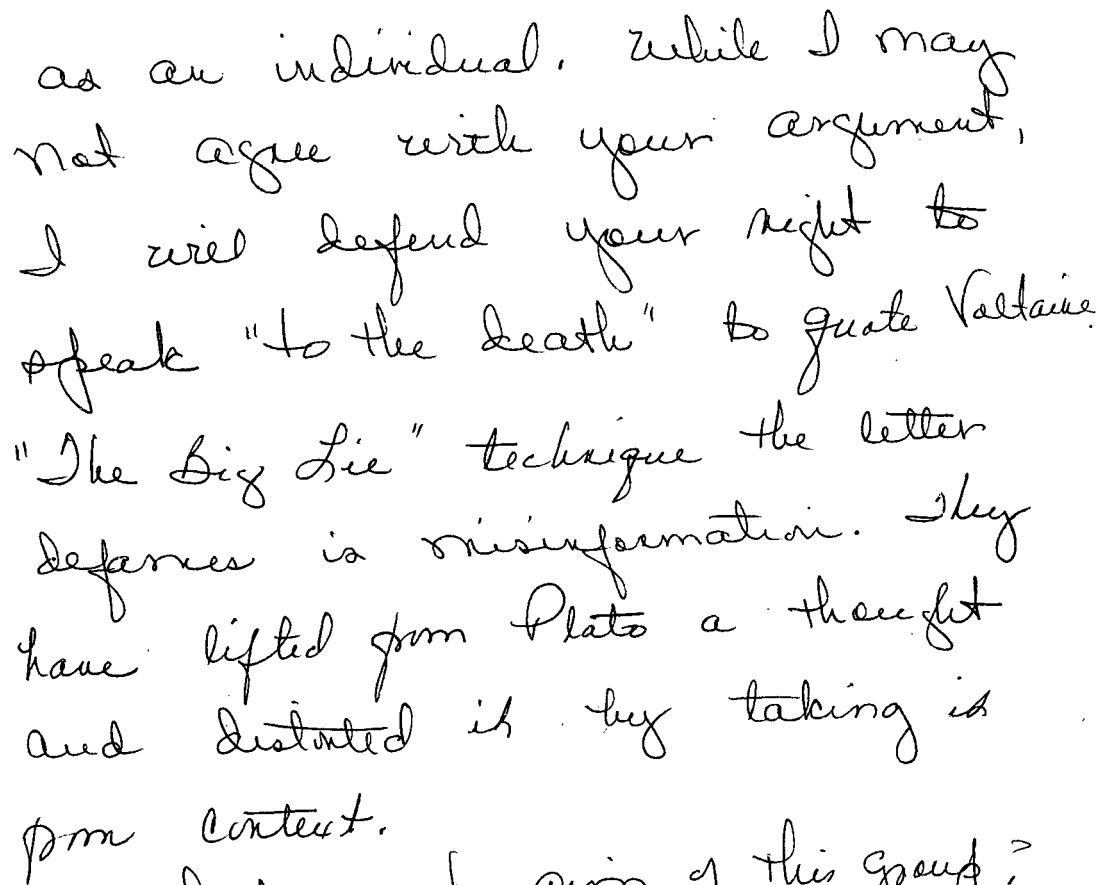 as an individual. While I may
not agree with your argument,
I will defend your right to
speak "to the death" to quote Voltaire.
"The Big Lie" technique the letter
defames is misinformation. They
have lifted from Plato a thought
and distorted it by taking it
from context.
of this group?